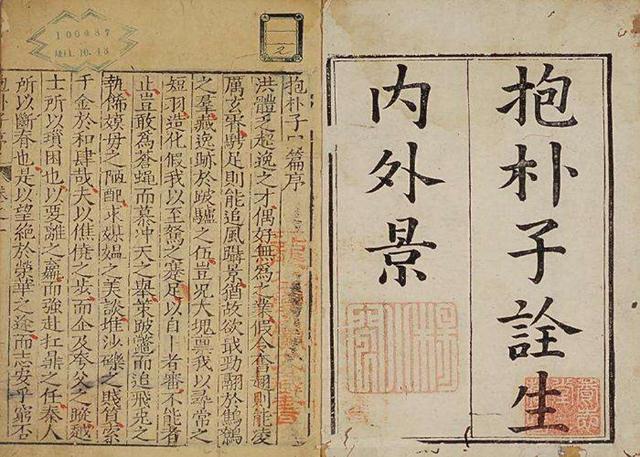 抱朴子詮生
内外景
抱朴子篇序
洪體乏超逸之才偶好無為之業假令奮翅則能凌
厲玄霄騁足則能追風躡景猶故欲戢勁翮於鷦鷯
之羣藏逸跡於跛驢之伍豈况大塊稟我以尋常之
短羽造化假我以至駑之蹇足以自卜者審不能者
止豈敢為蒼蠅而慕冲天之舉策跛鼈而追飛兔之
軌飾嫫母之陋醜求媒媼之美談堆沙礫之賤質索
千金於和肆哉夫以僬僥之步而企及夸父之蹤越
士所以瑣困也以要離之羸而強赴扛鼎之任秦人
所以斷脊也是以望絕於榮華之途而志安乎窮否